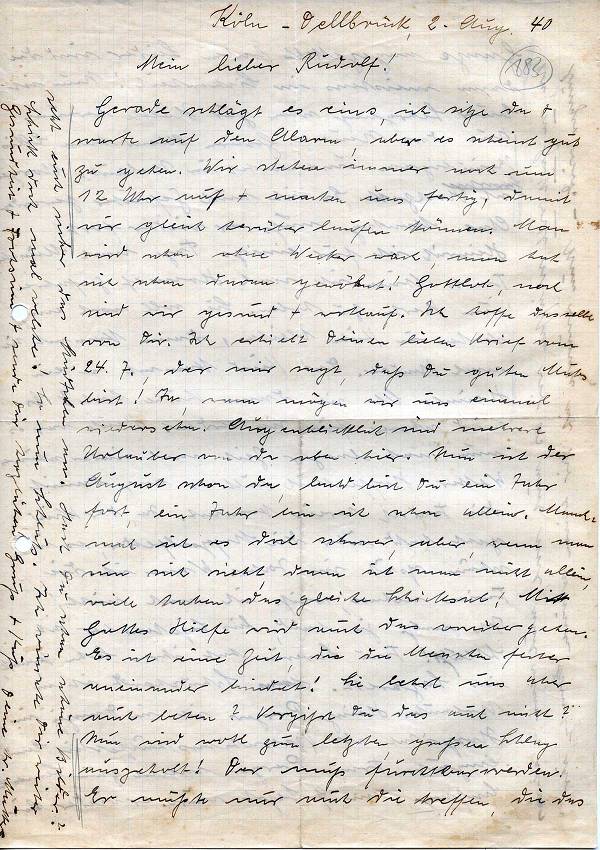 Köln - Dellbrück, 2. Aug. 40
182
Mein lieber Rudolf!
Gerade schlägt es eins, ich sitze da +
warte auf den Alarm, aber es scheint gut
zu gehen. Wir stehen immer noch um
12 Uhr auf + machen uns fertig, damit
wir gleich herüber laufen können. Man
wird schon ohne Wecker wach, man hat
sich schon daran gewöhnt! Gottlob, noch
sind wir gesund + wohlauf. Ich hoffe dasselbe
von Dir. Ich erhielt Deinen lieben Brief vom
24. 7., der mir sagt, daß Du guten Muts
bist! Ja, wann mögen wir uns einmal
wiedersehn. Augenblicklich sind mehrere
Urlauber von da oben hier. Nun ist der
August schon da, bald bist Du ein Jahr
fort, ein Jahr bin ich schon allein. Manch-
mal ist es doch schwer, aber, wenn man
um sich sieht, dann ist man nicht allein,
viele haben das gleiche Schicksal! Mit
Gottes Hilfe wird auch das vorüber gehen.
Es ist eine Zeit, die die Menschen fester
aneinander bindet! Sie lehrt uns aber
auch beten? Vergißt Du das auch nicht?
Nun wird wohl zum letzten, großen Schlag
ausgeholt! Der muß furchtbar werden.
Er müßte nur auch die treffen, die das
seht euch sicher das Städtchen an. Hast Du schon schöne Bilder?
schick doch mal welche! So nun Schluß. Ich wünsche Dir weiter
Gesundheit + Frohsinn + sende Dir herzlichen Gruß + Kuß, Deine lb. Mutter